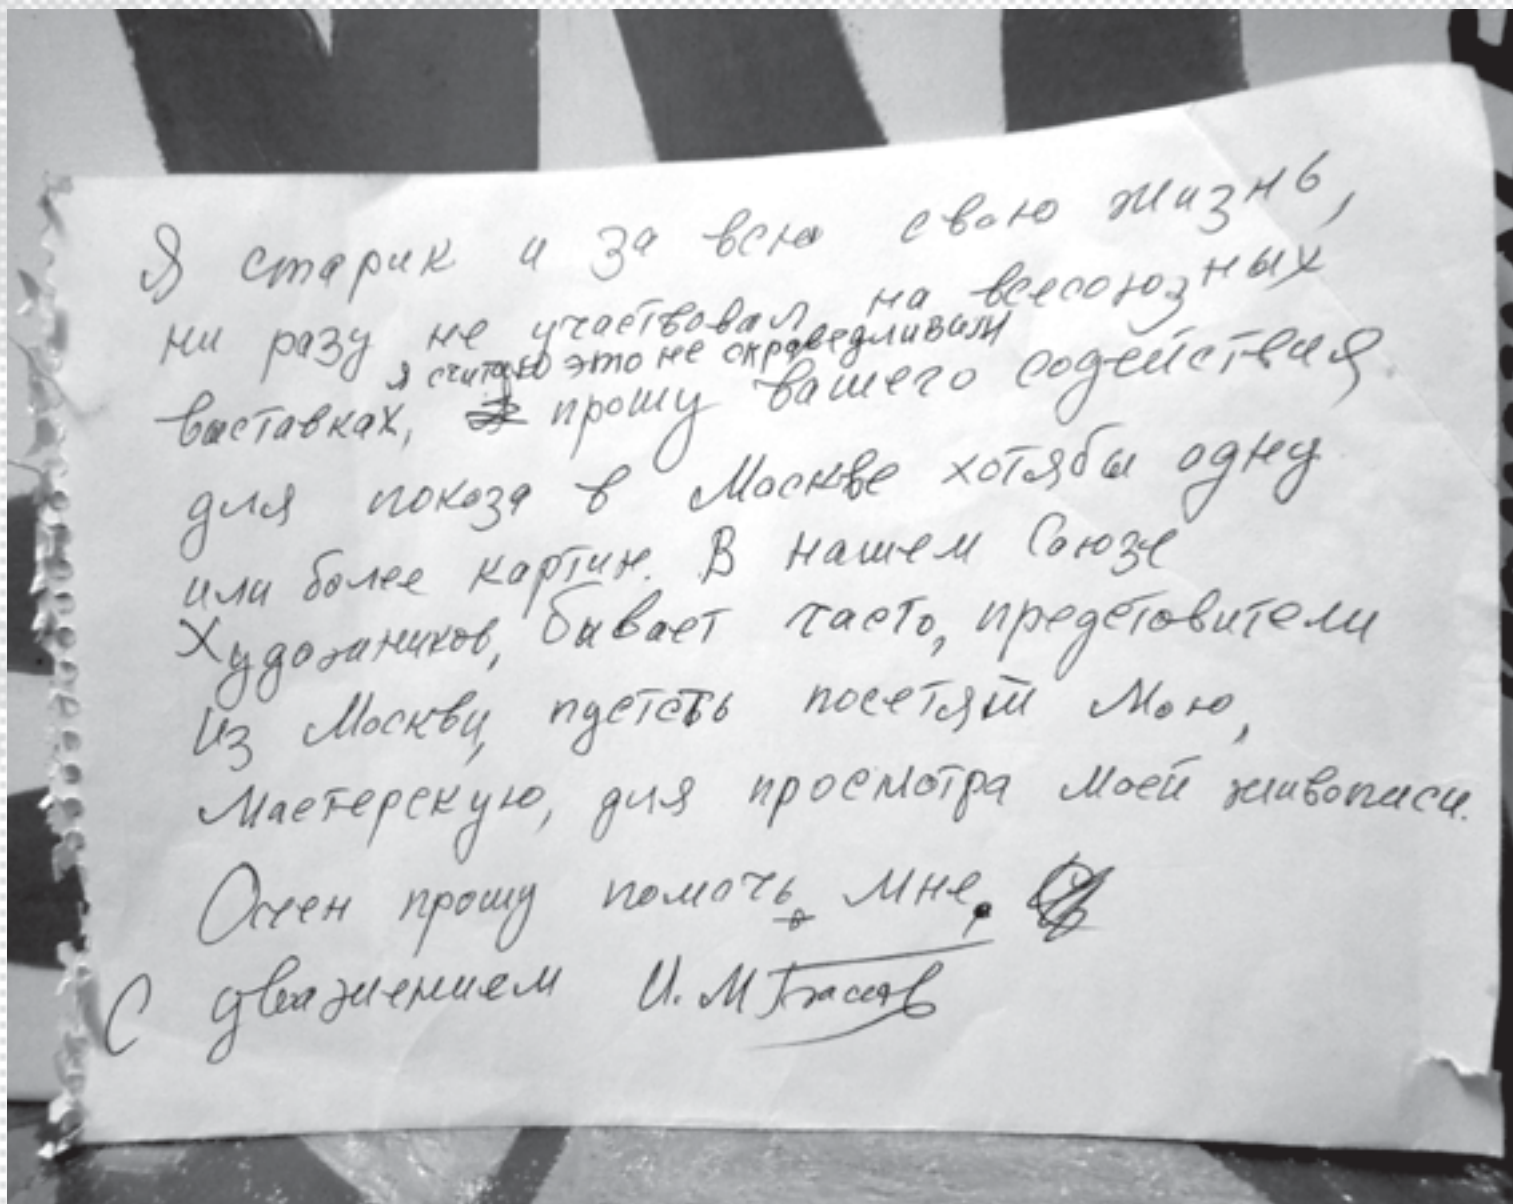 Я старик и за всю свою жизнь,
ни разу не участвовал на всесоюзных
я считаю это не справедливым
выставках, прошу вашего содействия
для показа в Москве хотябы одну
или более картин. В нашем Союзе
Художников, бывает часто, предстовители
Из Москвы, пусть посетят Мою,
Мастерскую, для просмотра моей живописи.
Очен прошу помочь мне.
С уважением И. М